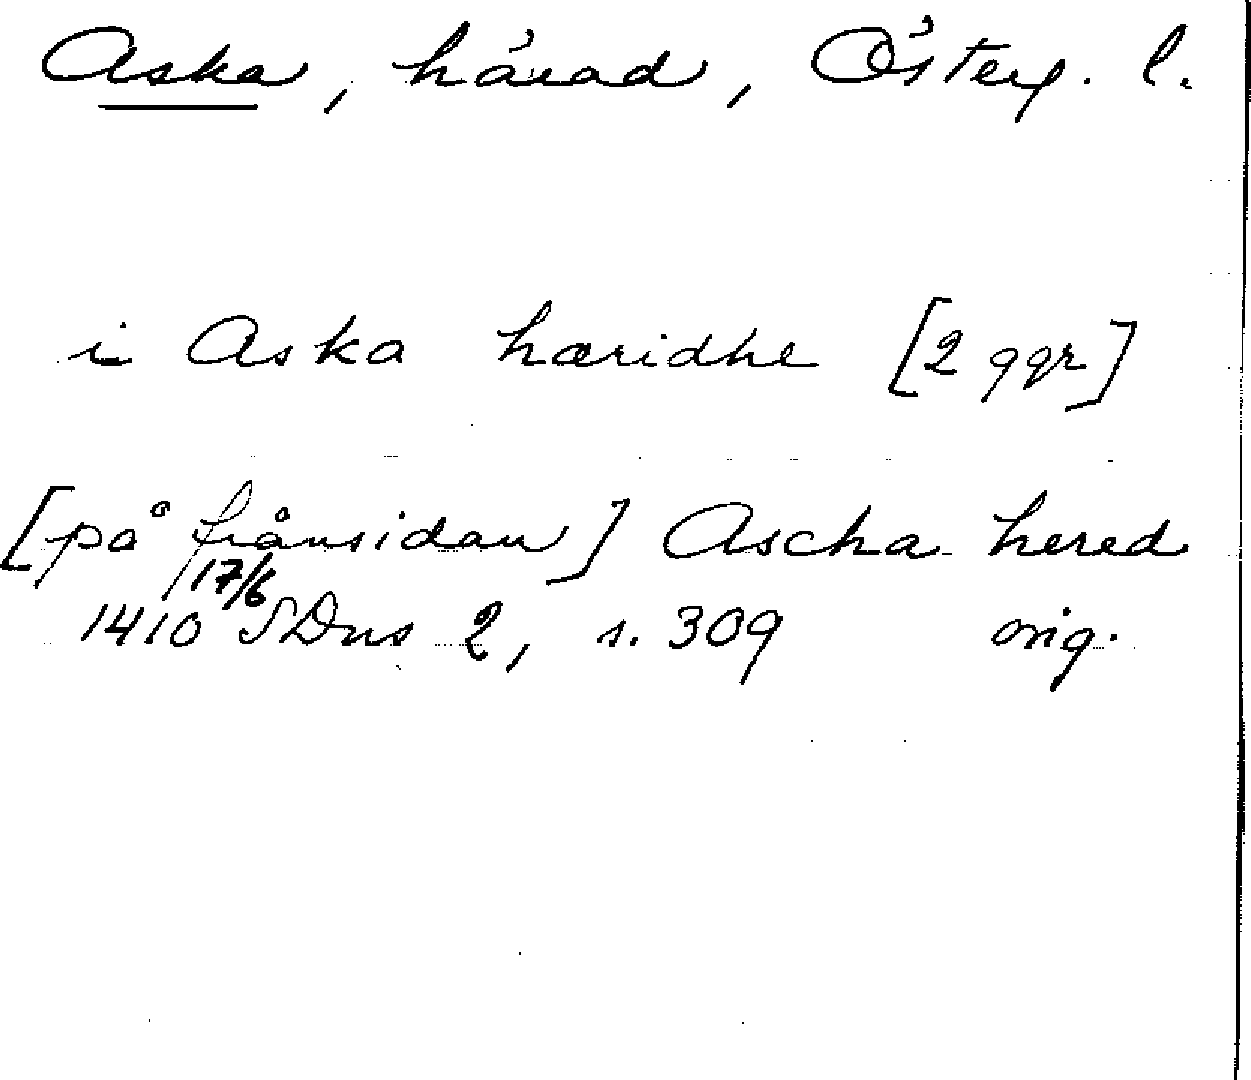 Aska, härad, Österg. l.
i Aska hæridhe [2 ggr]
[på frånsidan] Ascha hered
17/6
1410 SDns 2, s. 309 orig.